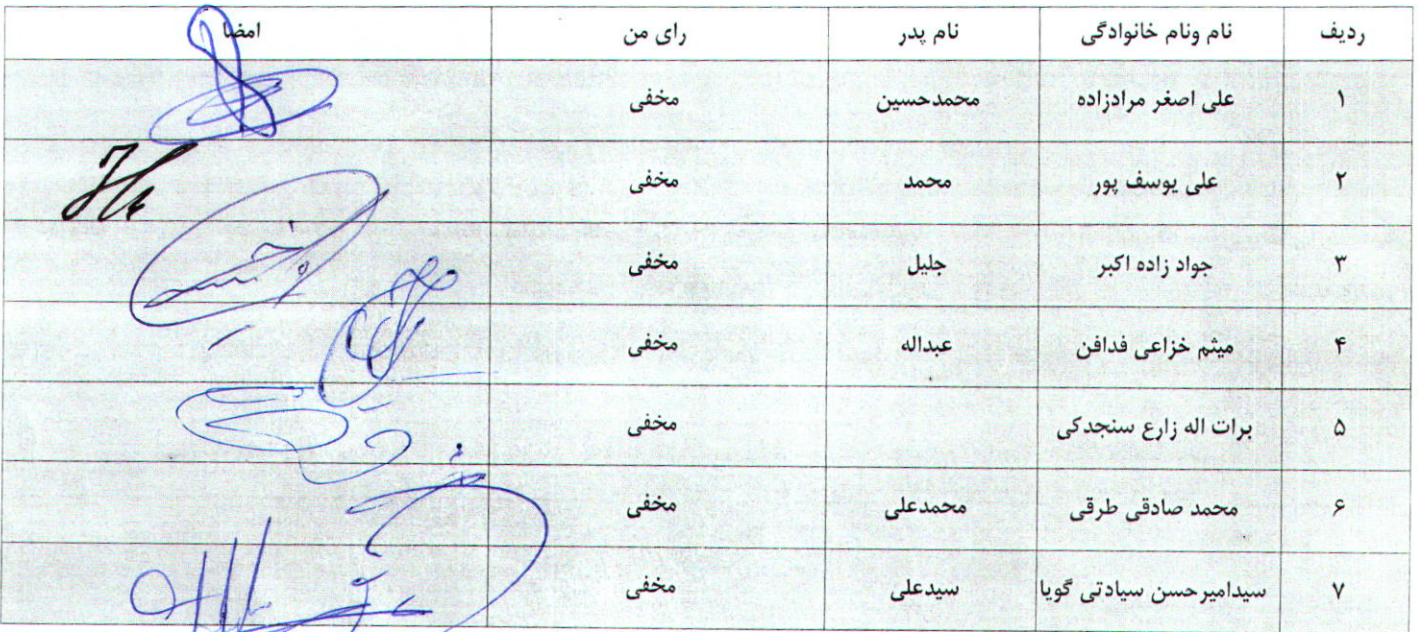 ردیف نام ونام خانوادگی نام پدر رای من امضا
۱ علی اصغر مرادزاده محمدحسین مخفی
۲ علی یوسف پور محمد مخفی
۳ جواد زاده اکبر جلیل مخفی
۴ میثم خزاعی فدافن عبداله مخفی
۵ برات اله زارع سنجدکی مخفی
۶ محمد صادقی طرقی محمدعلی مخفی
۷ سیدامیرحسن سیادتی گویا سیدعلی مخفی